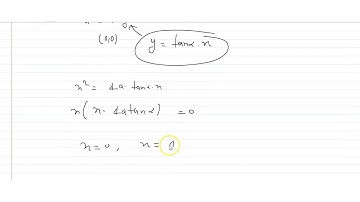 0
(0,0)
y = tanα·x
x² = 4a·tanα·x
x(x - 4atanα) = 0
x = 0, x =